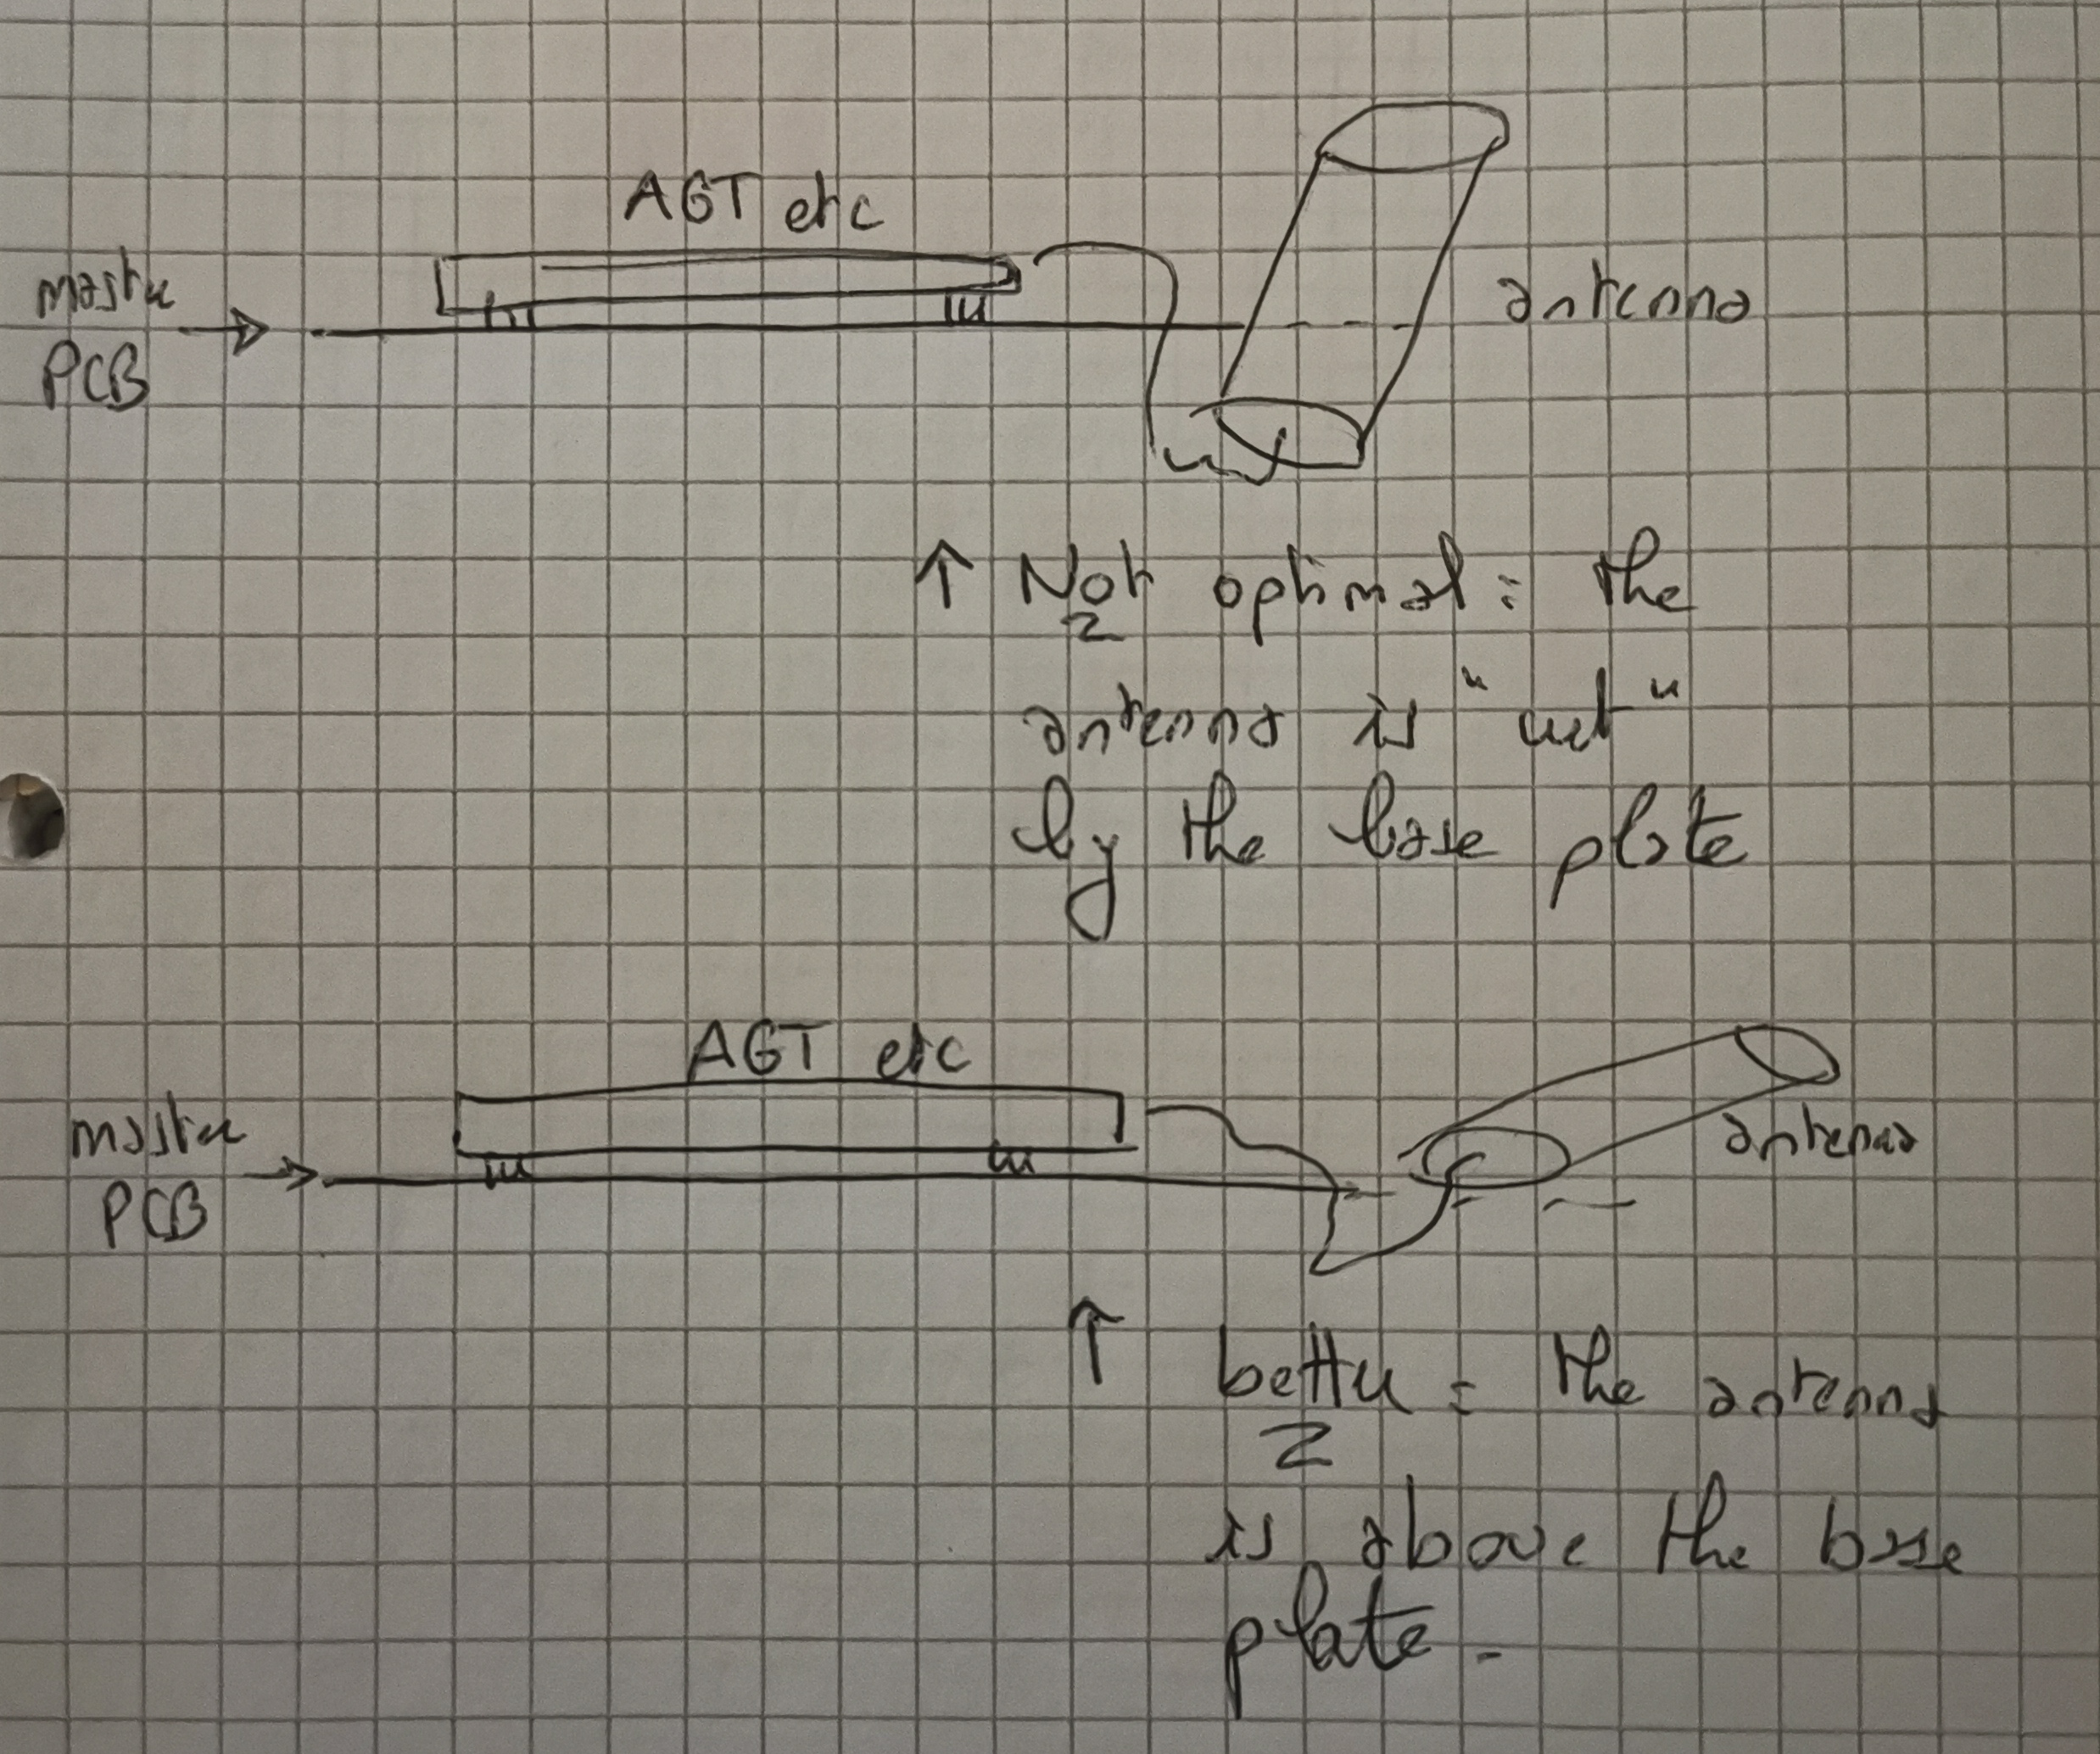 AGT etc
master
PCB
antenna
↑ Not optimal : the
antenna is "cut"
by the base plate
AGT etc
master
PCB
antenna
↑ better : the antenna
is above the base
plate.